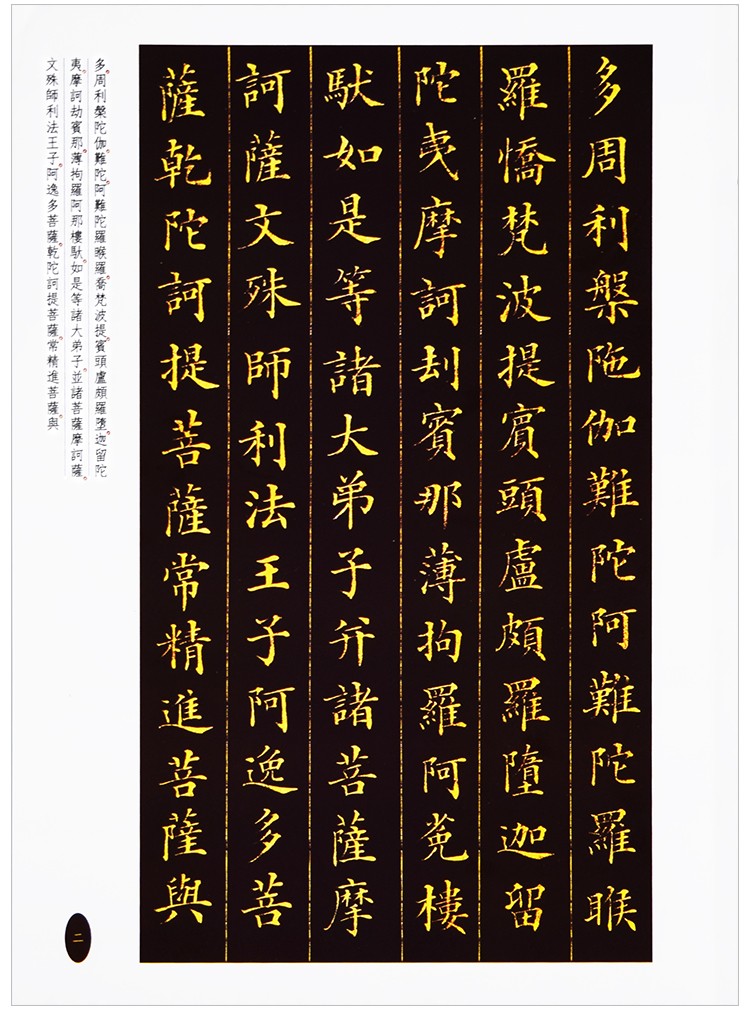 多周利槃陁伽難陀阿難陀羅睺
羅憍梵波提賓頭盧頗羅墮迦留
陀夷摩訶刦賓那薄拘羅阿㝹樓
馱如是等諸大弟子并諸菩薩摩
訶薩文殊師利法王子阿逸多菩
薩乾陀訶提菩薩常精進菩薩與
多。周利槃陀伽。難陀。阿難陀羅睺羅。喬梵波提。賓頭盧頗羅墮。迦留陀
夷。摩訶劫賓那。薄拘羅阿那樓馱。如是等諸大弟子。並諸菩薩摩訶薩。
文殊師利法王子。阿逸多菩薩。乾陀訶提菩薩。常精進菩薩。與
二